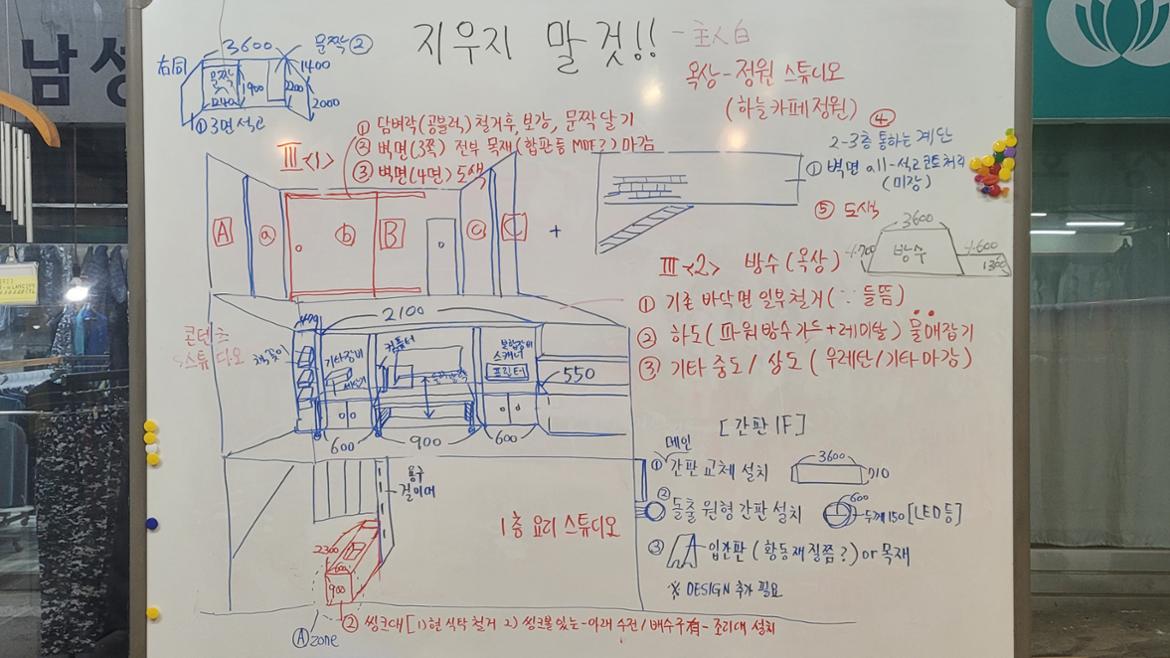 남성
3600
문짝 ②
右同
1400
문짝
1900
2200
1240
2000
① 3면 석고
지우지 말 것!!
- 主人白
옥상 - 정원 스튜디오
(하늘카페정원)
① 담벼락(공블럭) 철거후, 보강, 문짝 달기
② 벽면(3쪽) 전부 목재(합판등 MDF?) 마감
③ 벽면(4면) 도색
Ⅲ <1>
A
ⓐ
ⓑ
B
ⓒ
C
+
④
2-3층 통하는 계단
① 벽면 all-석고콘트처리
(미장)
⑤ 도색
3600
방수
1300
Ⅲ <2> 방수(옥상)
① 기존 바닥면 일부철거(∵ 들뜸)
② 하도(파워방수가드+레미탈) 물매잡기
③ 기타 중도/상도(우레탄/기타마감)
콘텐츠
스튜디오
2100
책꽂이
기타장비
컴퓨터
복합장비
스캐너
프린터
550
600
900
600
용구
걸이대
1층 요리 스튜디오
2300
600
900
Ⓐ zone
② 씽크대[1) 현 식탁 철거 2) 씽크볼 있는-아래 수전/배수구有-조리대 설치
[간판 IF]
메인
① 간판 교체 설치
3600
710
② 돌출 원형 간판 설치
600
두께 150 [LED등]
③ 입간판(황동재질쯤?) or 목재
※ DESIGN 추가 필요